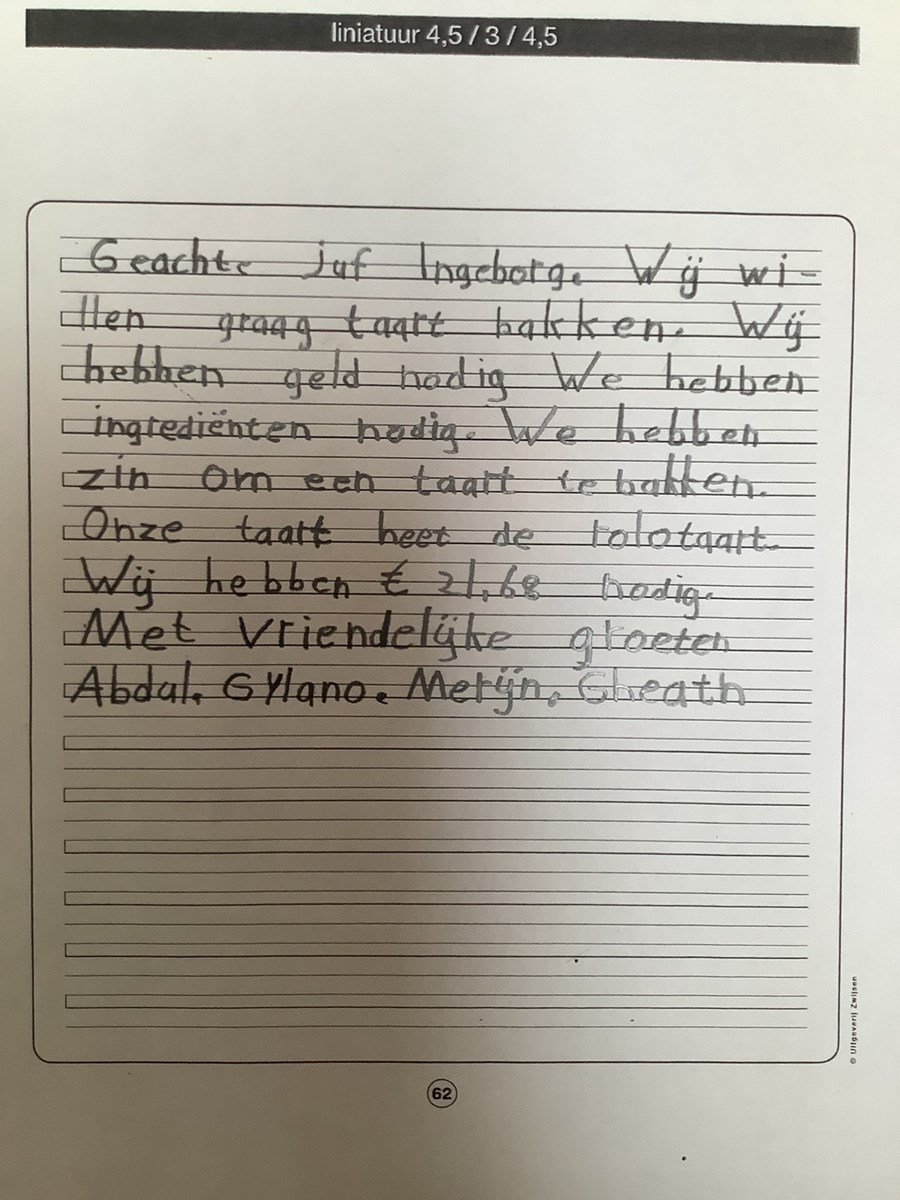 liniatuur 4,5 / 3 / 4,5
Geachte juf Ingeborg. Wij wi-
llen graag taart bakken. Wij
hebben geld nodig We hebben
ingrediënten nodig. We hebben
zin om een taart te bakken.
Onze taart heet de rolotaart.
Wij hebben € 21,68 nodig.
Met vriendelijke groeten
Abdal. Gylano. Merijn. Gheath
© Uitgeverij Zwijsen
62